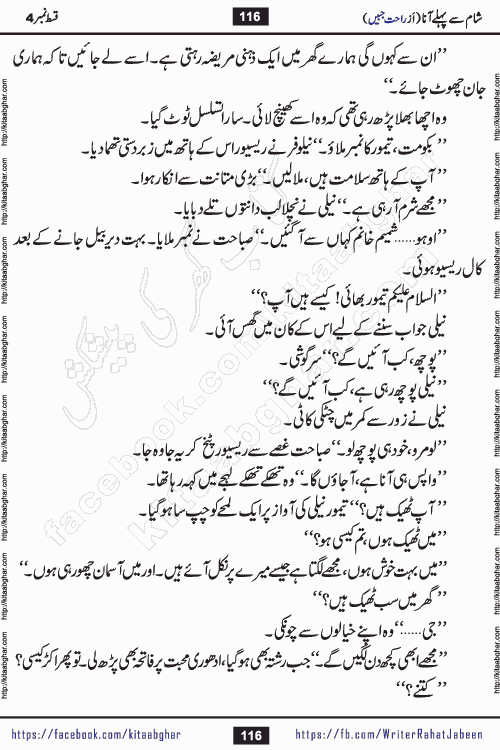 شام سے پہلے آنا (از راحت جبیں)
116
قسط نمبر 4
’’ان سے کہوں گی ہمارے گھر میں ایک ذہنی مریضہ رہتی ہے۔ اسے لے جائیں تاکہ ہماری
جان چھوٹ جائے۔‘‘
وہ اچھا بھلا پڑھ رہی تھی کہ وہ اسے کھینچ لائی۔ سارا تسلسل ٹوٹ گیا۔
’’بکومت، تیمور کا نمبر ملاؤ۔‘‘ نیلوفر نے ریسیور اس کے ہاتھ میں زبردستی تھما دیا۔
’’آپ کے ہاتھ سلامت ہیں، ملا لیں۔‘‘ بڑی متانت سے انکار ہوا۔
’’مجھے شرم آ رہی ہے۔‘‘ نیلی نے نچلا لب دانتوں تلے دبایا۔
’’اوہو...... شمیم خانم کہاں سے آ گئیں۔‘‘ صباحت نے نمبر ملایا۔ بہت دیر بیل جانے کے بعد
کال ریسیو ہوئی۔
’’السلام علیکم تیمور بھائی! کیسے ہیں آپ؟‘‘
نیلی جواب سننے کے لیے اس کے کان میں گھس آئی۔
’’پوچھ، کب آئیں گے؟‘‘ سرگوشی۔
’’نیلی پوچھ رہی ہے، کب آئیں گے؟‘‘
نیلی نے زور سے کمر میں چٹکی کاٹی۔
’’لو مرو، خود ہی پوچھ لو۔‘‘ صباحت غصے سے ریسیور پٹخ کر یہ جا وہ جا۔
’’واپس ہی آنا ہے، آ جاؤں گا۔‘‘ وہ تھکے تھکے لہجے میں کہہ رہا تھا۔
’’آپ ٹھیک ہیں؟‘‘ تیمور نیلی کی آواز پر ایک لمحے کو چپ سا ہو گیا۔
’’میں ٹھیک ہوں، تم کیسی ہو؟‘‘
’’میں بہت خوش ہوں، مجھے لگتا ہے جیسے میرے پر نکل آئے ہیں۔ اور میں آسمان چھو رہی ہوں۔‘‘
’’گھر میں سب ٹھیک ہیں؟‘‘
’’جی......‘‘ وہ اپنے خیالوں سے چونکی۔
’’مجھے ابھی کچھ دن لگیں گے۔‘‘ جب رشتہ بھی ہو گیا، ادھوری محبت پر فاتحہ بھی پڑھ لی۔ تو پھر اکڑ کیسی؟
’’کتنے؟‘‘
https://facebook.com/kitaabghar
116
https://fb.com/WriterRahatJabeen
http://kitaabghar.com
کتاب گھر کی پیشکش
facebook.com/kitaabghar
kitaabghar.com